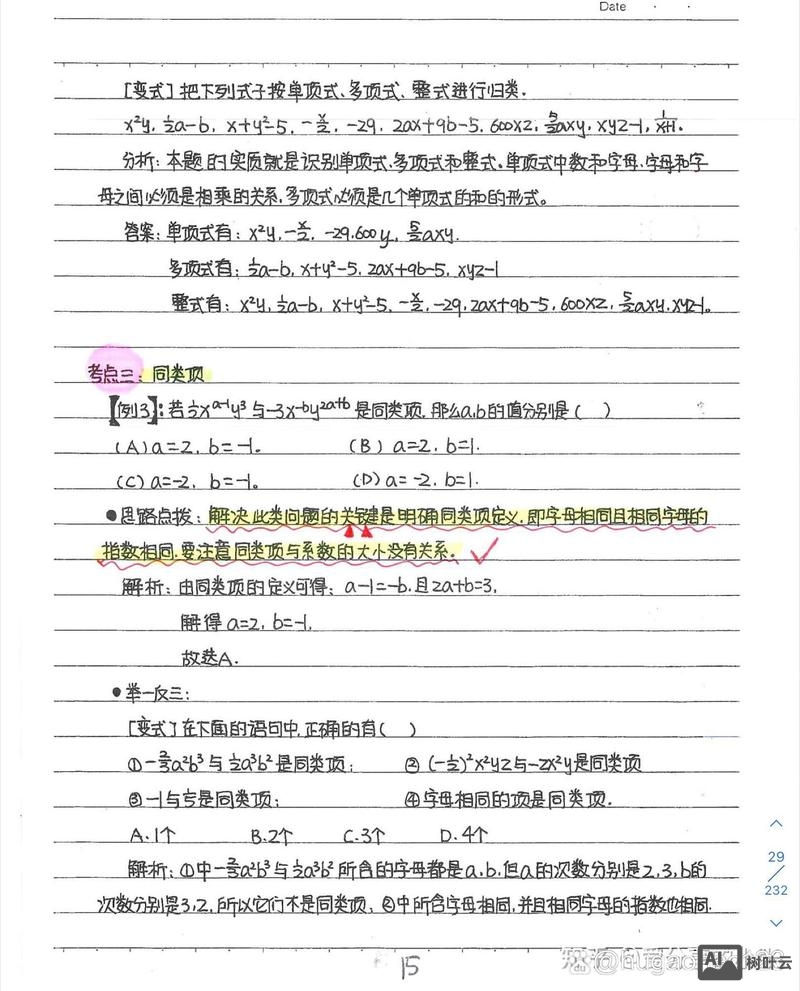 Date
[变式] 把下列式子按单项式、多项式、整式进行归类.
x²y, ½a-b, x+y²-5, -x/2, -29, 2ax+9b-5, 600xz, 5/2axy, xyz-1, 1/x+1.
分析: 本题的实质就是识别单项式、多项式和整式.单项式中数和字母、字母和字
母之间必须是相乘的关系,多项式必须是几个单项式的和的形式。
答案: 单项式有: x²y, -x/2, -29.600y, 5/2axy.
多项式有: ½a-b, x+y²-5, 2ax+9b-5, xyz-1
整式有: x²y, ½a-b, x+y²-5, -x/2, -29, 2ax+9b-5, 600xz, 5/2axy, xyz-1。
考点三: 同类项
【例3】: 若 xᵃ⁻¹y³ 与-3x⁻ᵇy²ᵃ⁺ᵇ 是同类项, 那么a,b的值分别是 ( )
(A) a=2, b=-1. (B) a=2, b=1.
(C) a=-2, b=-1. (D) a=-2, b=1.
●思路点拨: 解决此类问题的关键是明确同类项定义, 即字母相同且相同字母的
指数相同.要注意同类项与系数的大小没有关系。
解析: 由同类项的定义可得: a-1=-b, 且2a+b=3,
解得 a=2, b=-1,
故选A.
●举一反三:
[变式] 在下面的语句中,正确的有( )
①-⅔a²b³ 与 ½a³b² 是同类项; ② (-½)²x²yz与-zx²y是同类项
③-1与是同类项; ④字母相同的项是同类项.
A.1个 B.2个 C.3个 D.4个
解析: ①中-⅔a²b³ 与½a³b² 所含的字母都是a,b,但a的次数分别是2,3,b的
次数分别是3,2, 所以它们不是同类项; ②中所含字母相同,并且相同字母的指数也相同.
15
29
232
AI
树叶云